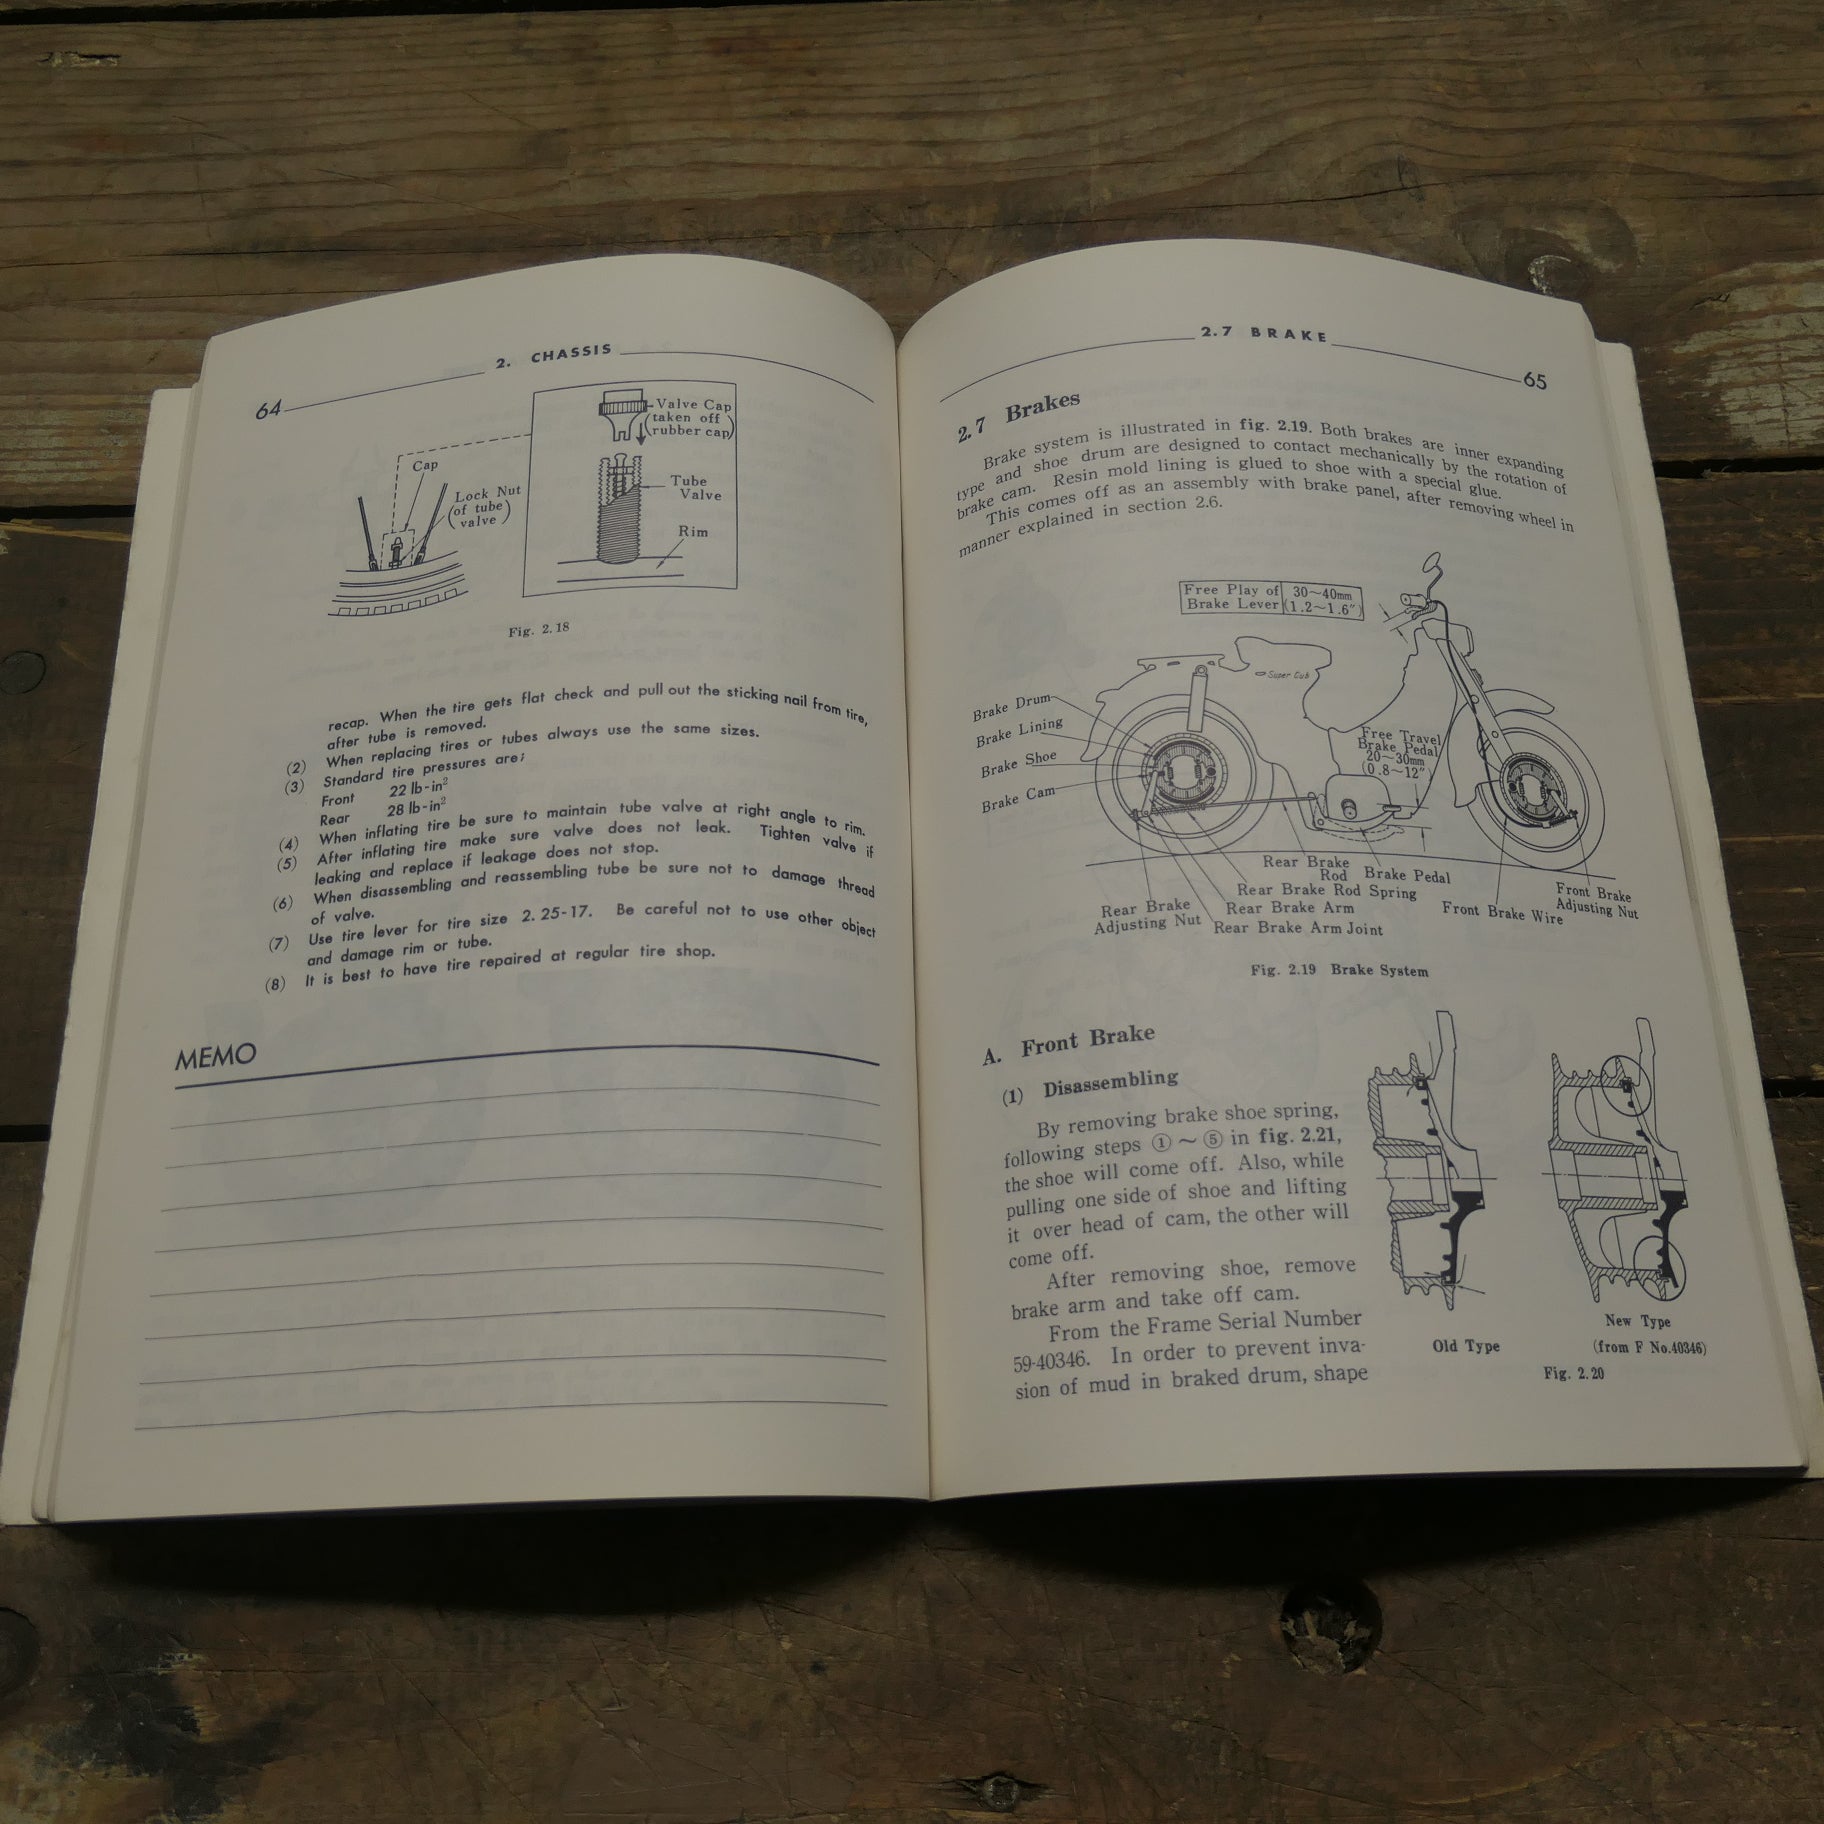 2. CHASSIS
64
Cap
Lock Nut
(of tube
valve)
Valve Cap
(taken off
rubber cap)
Tube
Valve
Rim
Fig. 2.18
recap. When the tire gets flat check and pull out the sticking nail from tire,
after tube is removed.
(2) When replacing tires or tubes always use the same sizes.
(3) Standard tire pressures are;
Front 22 lb-in²
Rear 28 lb-in²
(4) When inflating tire be sure to maintain tube valve at right angle to rim.
(5) After inflating tire make sure valve does not leak. Tighten valve if
leaking and replace if leakage does not stop.
(6) When disassembling and reassembling tube be sure not to damage thread
of valve.
(7) Use tire lever for tire size 2. 25-17. Be careful not to use other object
and damage rim or tube.
(8) It is best to have tire repaired at regular tire shop.
MEMO
2.7 BRAKE
65
2.7 Brakes
Brake system is illustrated in fig. 2.19. Both brakes are inner expanding
type and shoe drum are designed to contact mechanically by the rotation of
brake cam. Resin mold lining is glued to shoe with a special glue.
This comes off as an assembly with brake panel, after removing wheel in
manner explained in section 2.6.
Free Play of
Brake Lever
30~40mm
(1.2~1.6")
Super Cub
Brake Drum
Brake Lining
Brake Shoe
Brake Cam
Free Travel
Brake Pedal
20~30mm
(0.8~12")
Rear Brake
Rod
Brake Pedal
Rear Brake Rod Spring
Rear Brake
Adjusting Nut
Rear Brake Arm
Rear Brake Arm Joint
Front Brake Wire
Front Brake
Adjusting Nut
Fig. 2.19 Brake System
A. Front Brake
(1) Disassembling
By removing brake shoe spring,
following steps ① ~ ⑤ in fig. 2.21,
the shoe will come off. Also, while
pulling one side of shoe and lifting
it over head of cam, the other will
come off.
After removing shoe, remove
brake arm and take off cam.
From the Frame Serial Number
59-40346. In order to prevent inva-
sion of mud in braked drum, shape
Old Type
New Type
(from F No.40346)
Fig. 2.20